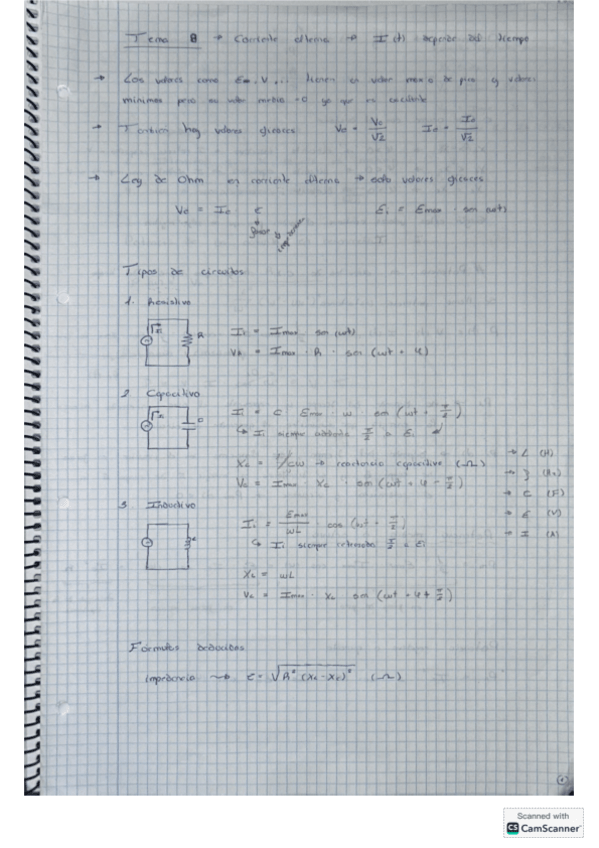 Tema 8 → Corriente alterna → I(t) depende del tiempo
→ Los valores como Em, V, ... tienen un valor max o de pico y valores
mínimos pero su valor medio = 0 ya que es oscilante
→ También hay valores eficaces Ve = Vo/√2 Ie = Io/√2
→ Ley de Ohm en corriente alterna → solo valores eficaces
Ve = Ie
Ei = Emax · sen (ωt)
Tipos de circuitos
1. Resistivo
R
Ii = Imax sen (ωt)
VR = Imax · R · sen (ωt + φ)
2. Capacitivo
C
Ii = C Emax · ω · sen (ωt + π/2)
↳ Ii siempre adelanta π/2 a Ei
Xc = 1/cω → reactancia capacitiva (Ω)
Vc = Imax · Xc · sen (ωt + φ - π/2)
→ L (H)
→ C (F)
→ E (V)
→ I (A)
3. Inductivo
Ii = Emax/ωL · cos (ωt - π/2)
↳ Ii siempre retrasada π/2 a Ei
XL = ωL
VL = Imax · XL sen (ωt + φ + π/2)
Formulas deducidas
impedancia
√R² (XL - Xc)² (Ω)
Scanned with
CS CamScanner